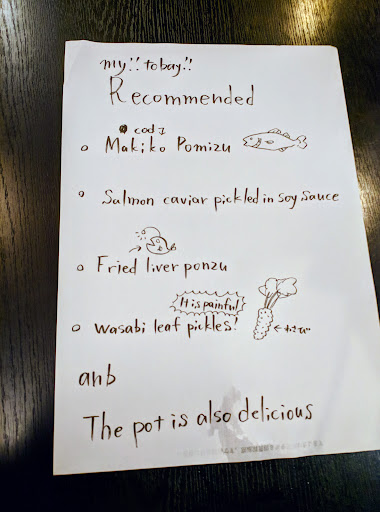 my!! tobay!!
Recommended
cod
○ Makiko Pomizu
○ Salmon caviar pickled in soy sauce
○ Fried liver ponzu
It is painful
○ wasabi leaf pickles!
←わさび
anb
The pot is also delicious